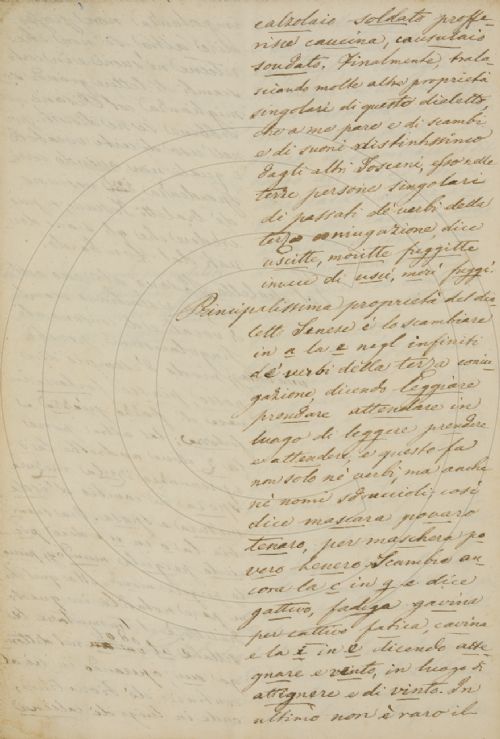 calzolaio soldato proffe-
risce caucina, causulaio
soudato. Finalmente, trala-
sciando molte altre proprietà
singolari di questo dialetto,
che a me pare e di scambi
e di suoni distintissimo
dagli altri Toscani, esso nelle
terze persone singolari
di passati de' verbi della
terza coniugazione dice
uscitte, moritte fuggitte
invece di uscì, morì fuggì.
Principalissima proprietà del dia-
letto Senese è lo scambiare
in a la e negl' infiniti
de' verbi della terza coniu-
gazione, dicendo leggiare
prendare attendare in
luogo di leggere prendere
e attendere, e questo fa
non solo ne' verbi, ma anche
ne' nomi sdruccioli; così
dice mascara povaro
tenaro, per maschera po-
vero tenero. Scambia an-
cora la c in g e dice
gattivo, fadiga gavina
per cattivo fatica, cavina
e la i in e dicendo atte-
gnare e vento, in luogo di
attignere e di vinto. In
ultimo non è raro il